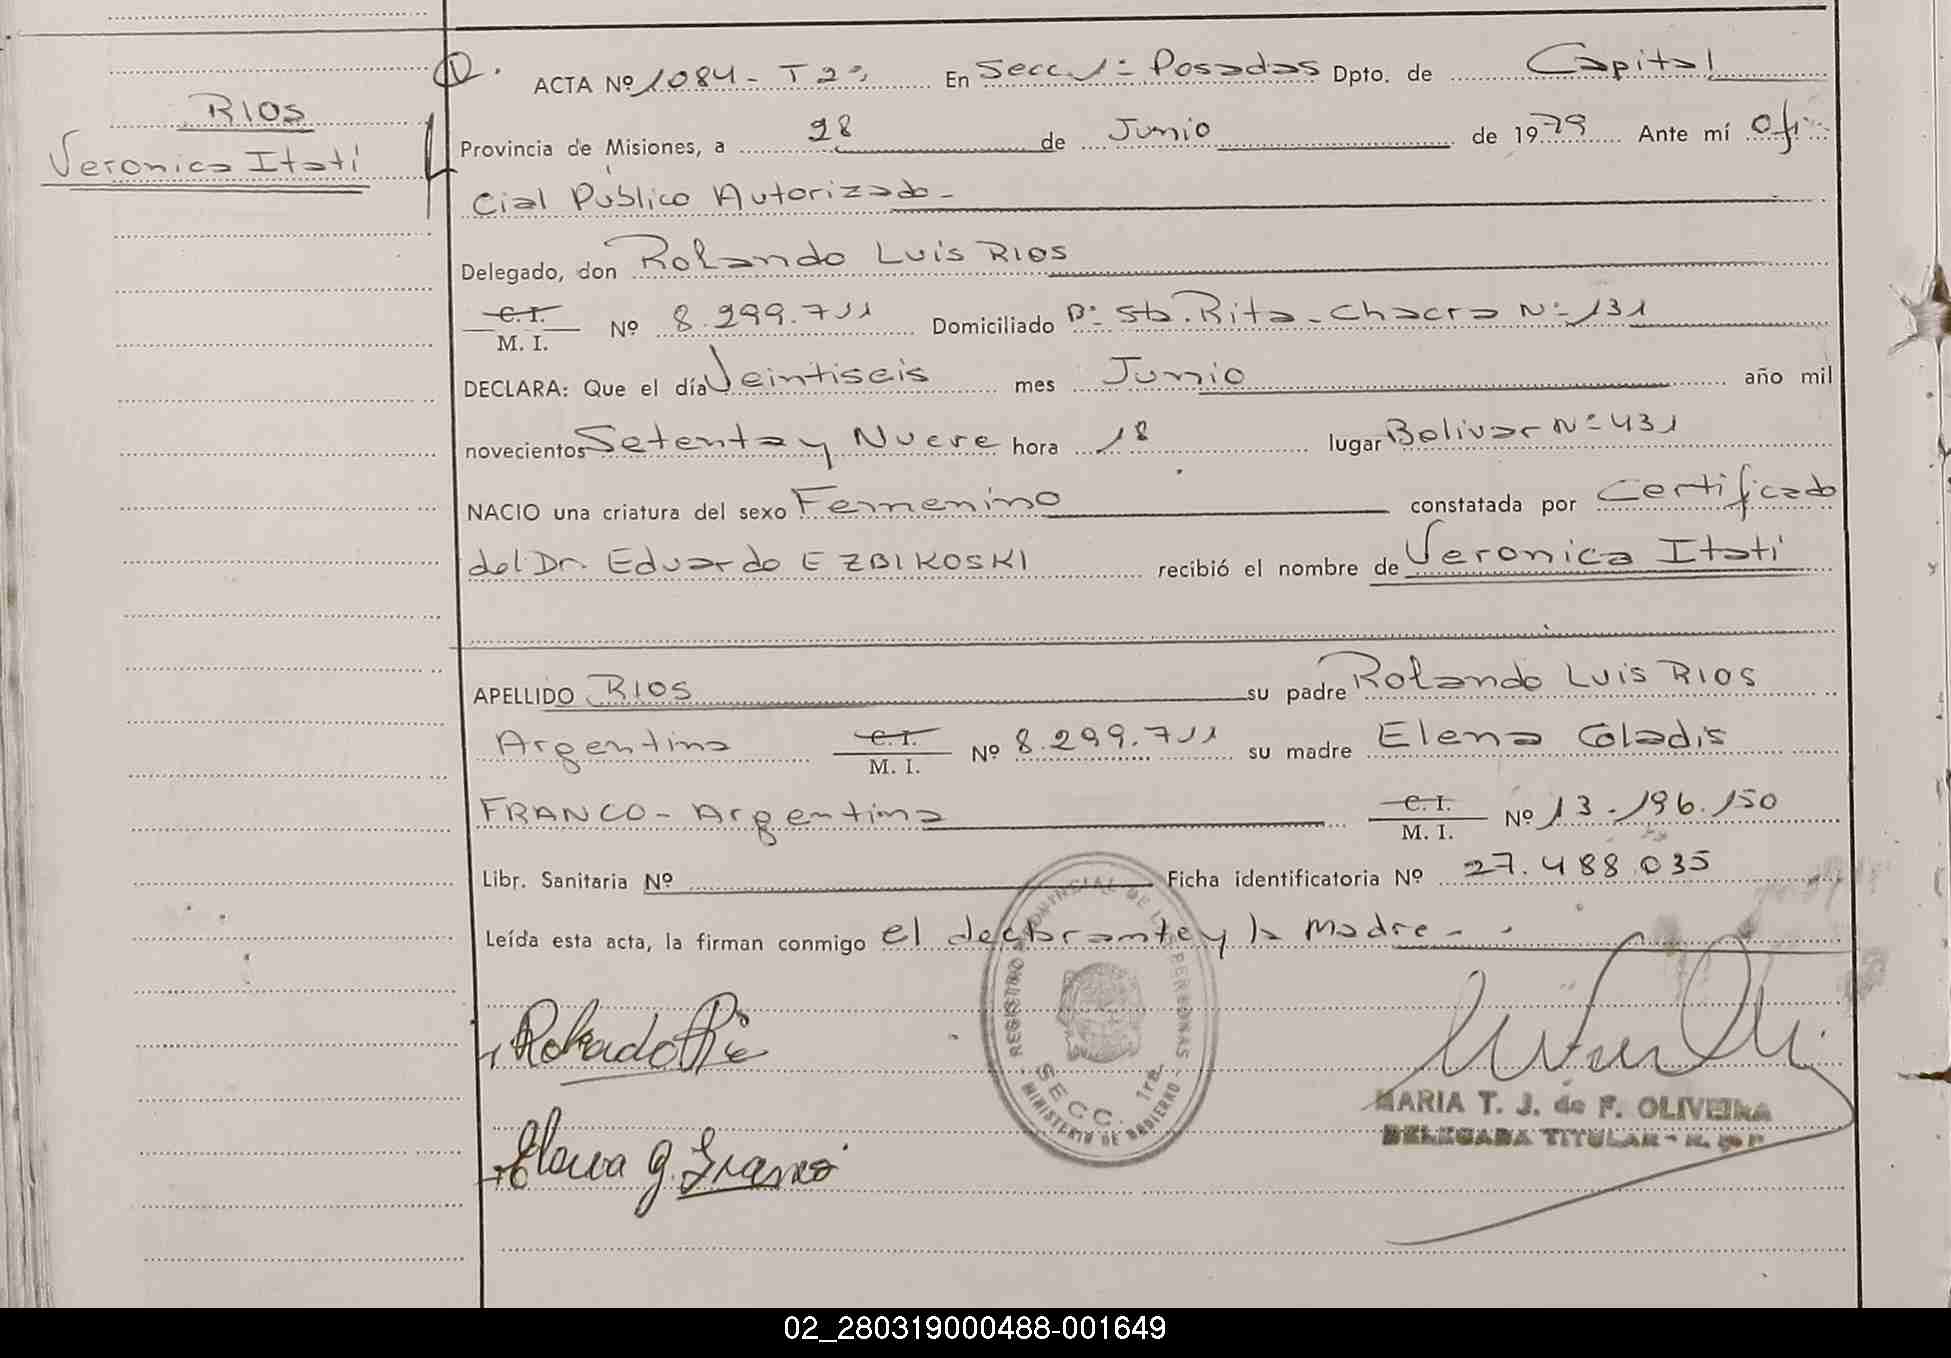 RIOS
Veronica Itatí
ACTA Nº 1084 - T 2º En Secc. 1ª Posadas Dpto. de Capital
Provincia de Misiones, a 28 de Junio de 1979 Ante mí Ofi
cial Público Autorizado -
Delegado, don Rolando Luis RIOS
C.I.
M. I. Nº 8.299.711 Domiciliado Bº Sta. Rita - Chacra Nº 131
DECLARA: Que el día Veintiseis mes Junio año mil
novecientos Setenta y Nueve hora 18 lugar Bolivar Nº 431
NACIO una criatura del sexo Femenino constatada por Certificado
del Dr. Eduardo EZBIKOSKI recibió el nombre de Veronica Itatí
APELLIDO RIOS su padre Rolando Luis RIOS
Argentino C.I. M. I. Nº 8.299.711 su madre Elena Gladis
FRANCO - Argentina C.I. M. I. Nº 13.196.150
Libr. Sanitaria Nº Ficha identificatoria Nº 27.488.035
Leída esta acta, la firman conmigo el declarante y la Madre -
REGISTRO PROVINCIAL DE LAS PERSONAS
SECC. 1ra.
MINISTERIO DE GOBIERNO
Rolando Rios
Elena G. Franco
MARIA T. J. de F. OLIVEIRA
DELEGADA TITULAR - R. P.
02_280319000488-001649